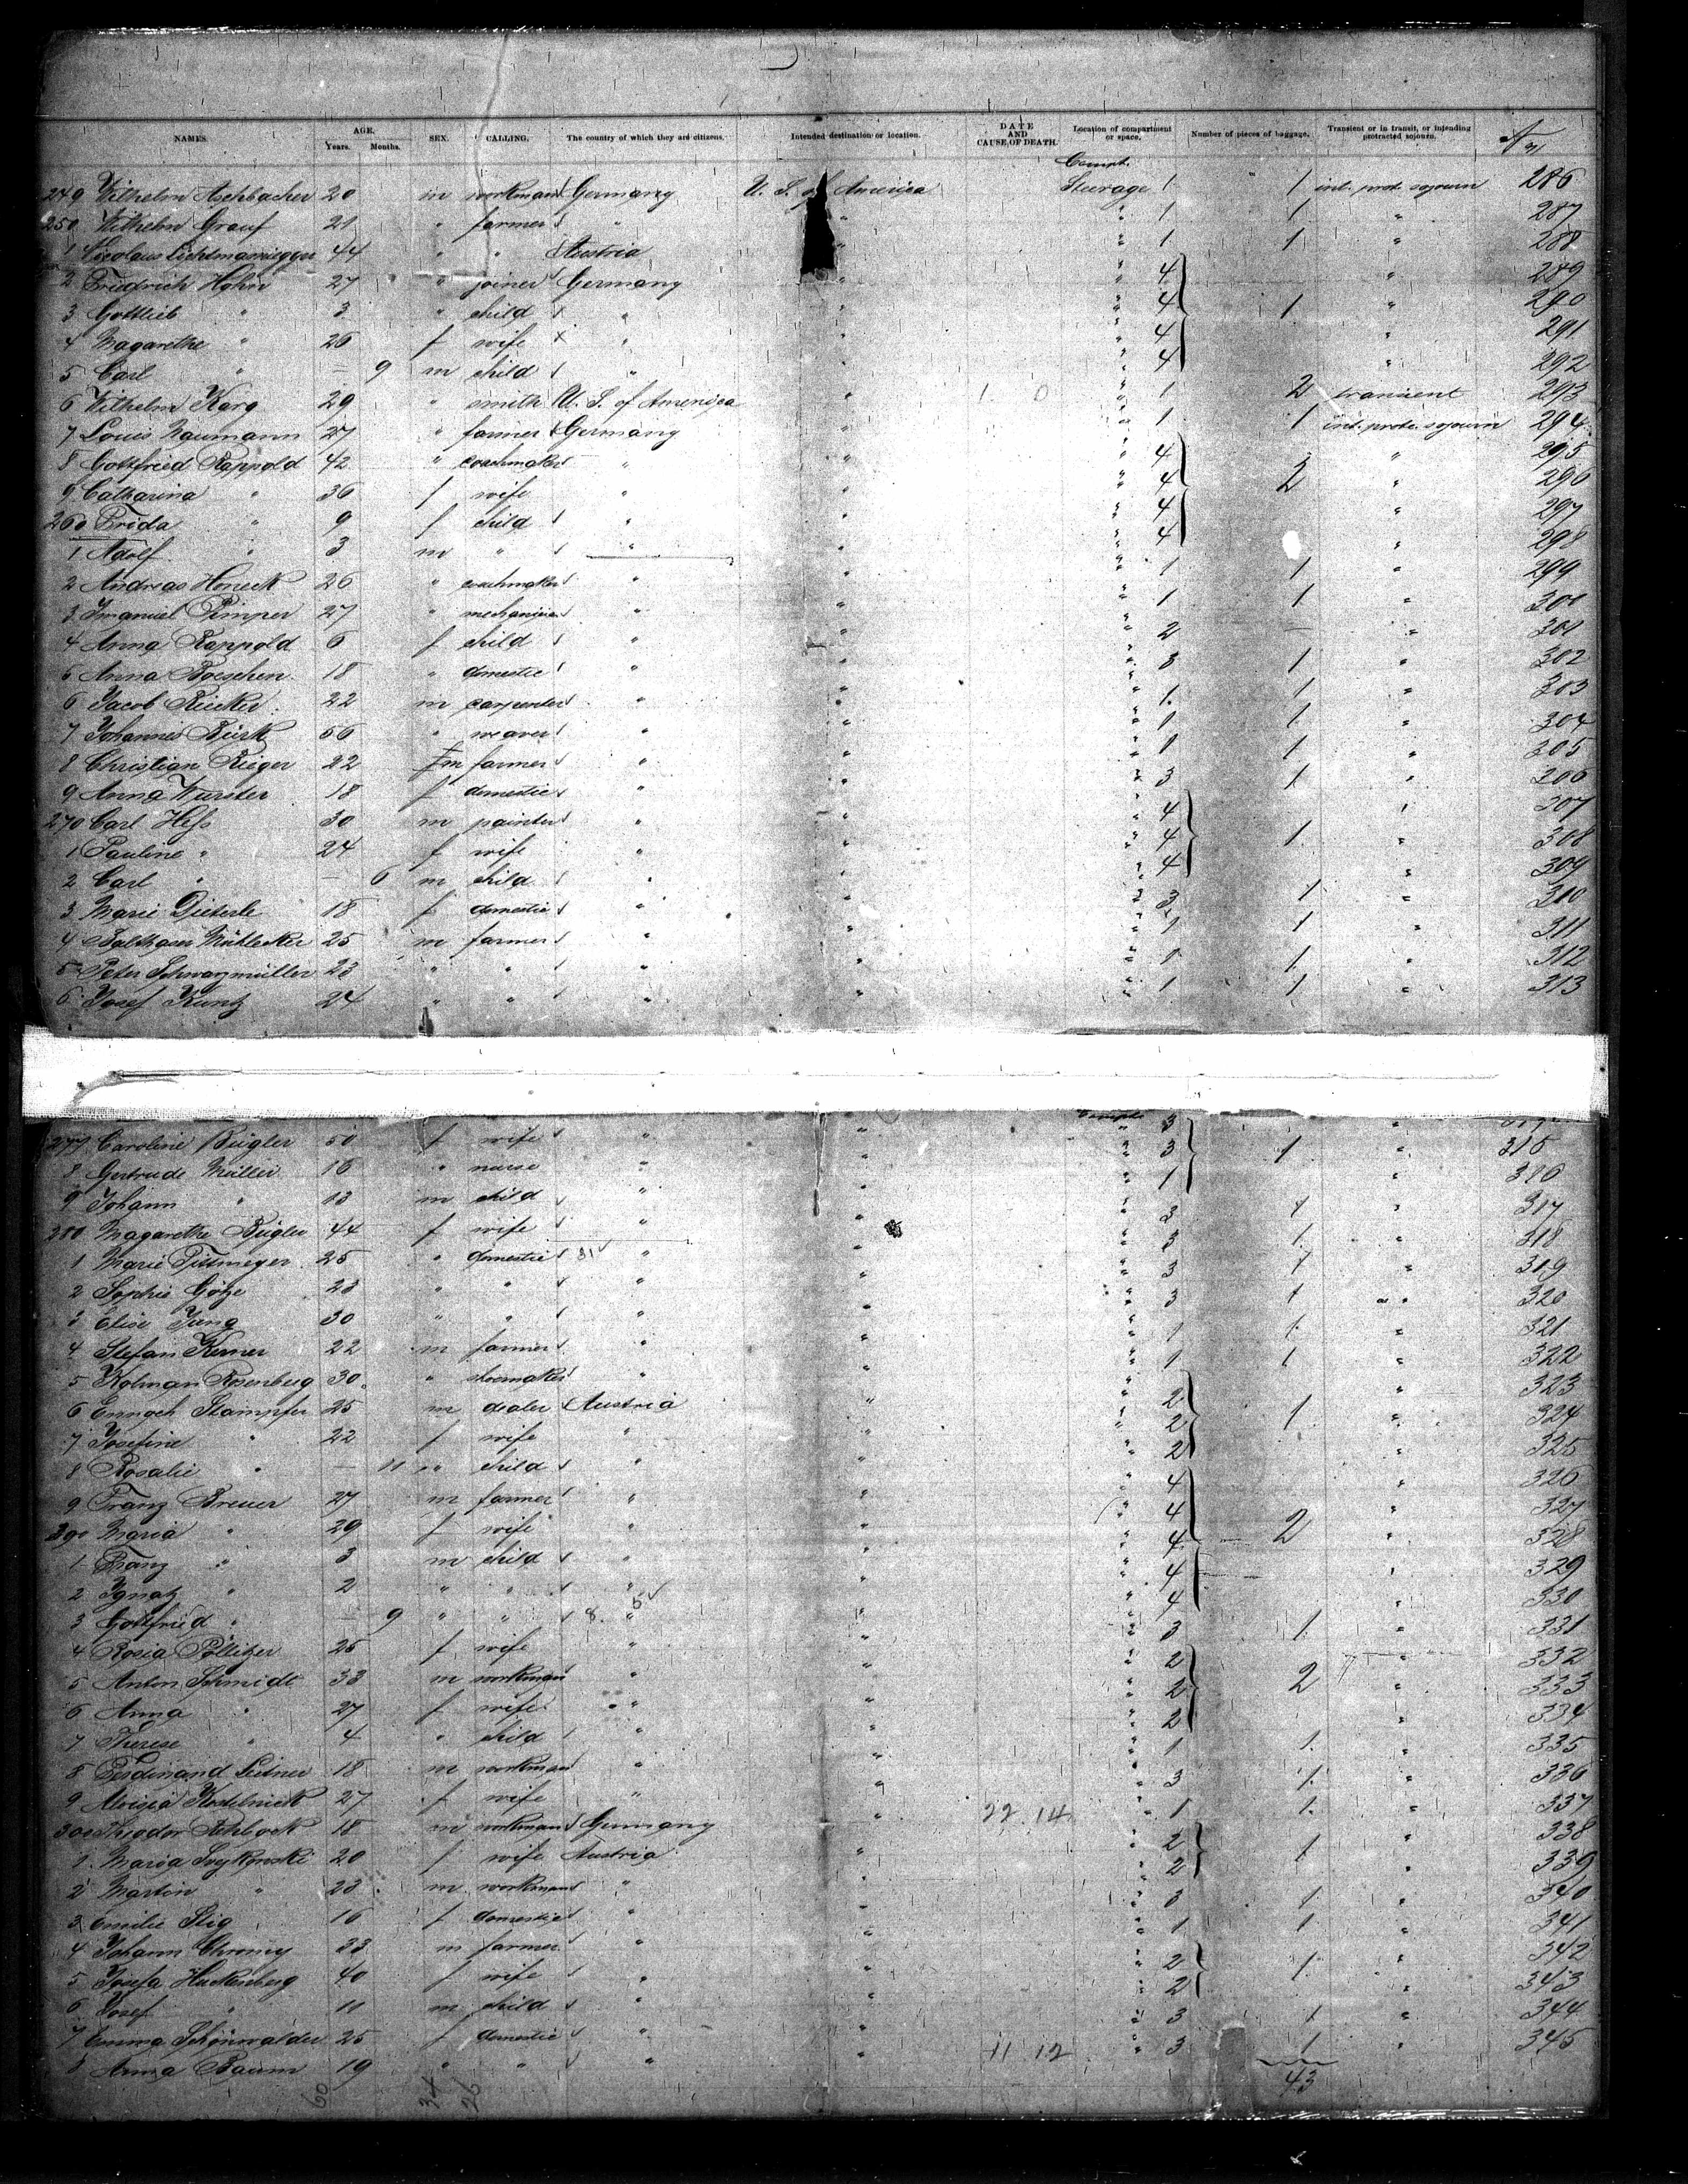 NAMES. AGE. Years. Months. SEX. CALLING. The country of which they are citizens. Intended destination or location. DATE AND CAUSE OF DEATH. Location of compartment or space. Number of pieces of baggage. Transient or in transit, or intending protracted sojourn.
Compt.
249 Wilhelm Aschbacher 20 m workman Germany U. S. of America Steerage 1 1 int. prot. sojourn 286
250 Wilhelm Grauf 21 " farmer " " " 1 1 " 287
1 Nicolaus 44 " " Austria " " 1 1 " 288
2 Friedrich Hohn 27 " joiner Germany " " 4 " 289
3 Gottlieb " 3 " child " " " 4 1 " 290
4 Magarethe " 26 f wife " " " 4 " 291
5 Carl " — 9 m child " " " 4 " 292
6 Wilhelm Karg 29 " smith U. S. of America " " 1 2 transient 293
7 Louis Naumann 27 " farmer Germany " " 1 1 int. prot. sojourn 294
8 Gottfried Rappold 42 " coachmaker " " " 4 " 295
9 Catharina " 36 f wife " " " 4 2 " 296
260 Frida " 9 f child " " " 4 " 297
1 Adolf " 3 m " " " " 4 " 298
2 Andreas Honeck 26 " coachmaker " " " 1 1 " 299
3 Imanuel Pimper 27 " mechanician " " " 1 1 " 300
4 Anna Rappold 6 f child " " " 2 — " 301
5 Anna Boeschen 18 " domestic " " " 3 1 " 302
6 Jacob Riecker 22 m carpenter " " " 1 1 " 303
7 Johannes Bürk 56 " weaver " " " 1 1 " 304
8 Christian Rieger 22 m farmer " " " 1 1 " 305
9 Anna Wurster 18 f domestic " " " 3 1 " 306
270 Carl Hess 30 m painter " " " 4 " 307
1 Pauline " 24 f wife " " " 4 1 " 308
2 Carl " — 6 m child " " " 4 " 309
3 Marie Dieterle 18 f domestic " " " 3 1 " 310
4 Balthaser 25 m farmer " " " 1 1 " 311
5 Peter Schwarzmüller 23 " " " " " 1 1 " 312
6 Josef Kuntz 24 " " " " " 1 1 " 313
277 Caroline Bügler 50 f wife " " " 3 "
8 Gertrude Müller 16 " nurse " " " 3 1 " 315
9 Johann " 13 m child " " " 1 " 316
280 Magarethe Bügler 44 f wife " " " 3 1 " 317
1 Marie 25 " domestic 31 " " " 3 1 " 318
2 Sophie Götze 23 " " " " " 3 1 " 319
3 Elise Jung 30 " " " " " 3 1 " 320
4 Stefan Kerner 22 m farmer " " " 1 1 " 321
5 Kolman Rosenberg 30 " shoemaker " " " 1 1 " 322
6 Stampfer 25 m dealer Austria " " 2 " 323
7 Josefine " 22 f wife " " " 2 1 " 324
8 Rosalie " — 11 " child " " " 2 " 325
9 Franz Breuer 27 m farmer " " " 4 " 326
290 Maria " 29 f wife " " " 4 2 " 327
1 Franz " 3 m child " " " 4 " 328
2 Ignatz " 2 " " " " " 4 " 329
3 Gottfried " — 9 " " 8. 5 " " " 4 " 330
4 Rosia Pollitzer 25 f wife " " " 3 1 " 331
5 Anton Schmidt 33 m workman " " " 2 " 332
6 Anna " 27 f wife " " " 2 2 " 333
7 Therese " 4 " child " " " 2 " 334
8 Ferdinand Leitner 18 m workman " " " 1 1 " 335
9 Aloisia 27 f wife " " " 3 1 " 336
300 18 m workman Germany " 22 14 " 1 1 " 337
1 Maria 20 f wife Austria " " 2 1 " 338
2 Martin " 23 m workman " " " 2 " 339
3 Emilie 16 f domestic " " " 3 1 " 340
4 Johann 33 m farmer " " " 1 1 " 341
5 Josefa Huckenberg 40 f wife " " " 2 1 " 342
6 Josef " 11 m child " " " 2 " 343
7 Emma Schönwalder 25 f domestic " " " 3 1 " 344
8 Anna Baum 19 " " " " 11 12 " 3 1 " 345
60 34 26 43